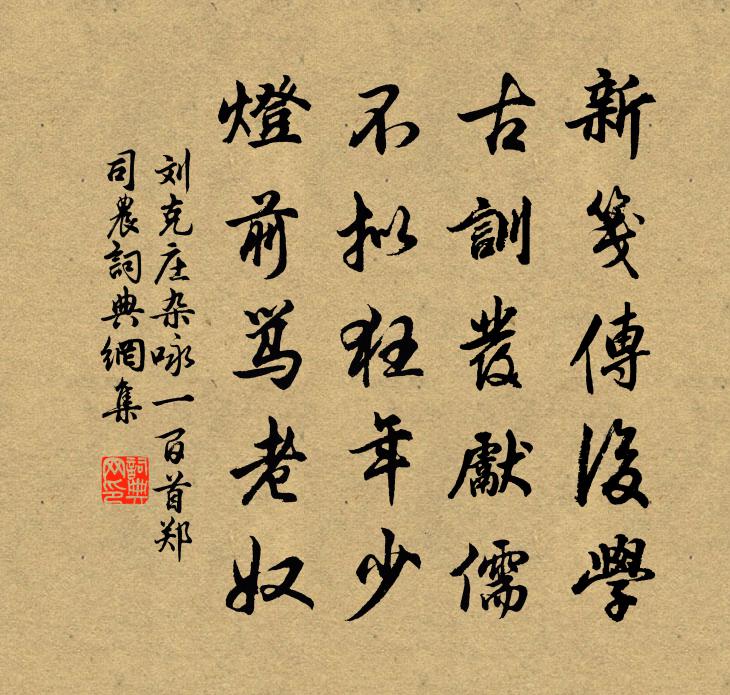 新箋傳後學
古訓發獻儒
不拟狂年少
燈前骂老奴
刘克庄杂咏一百首郑
司農詞典網集
詞典
网印